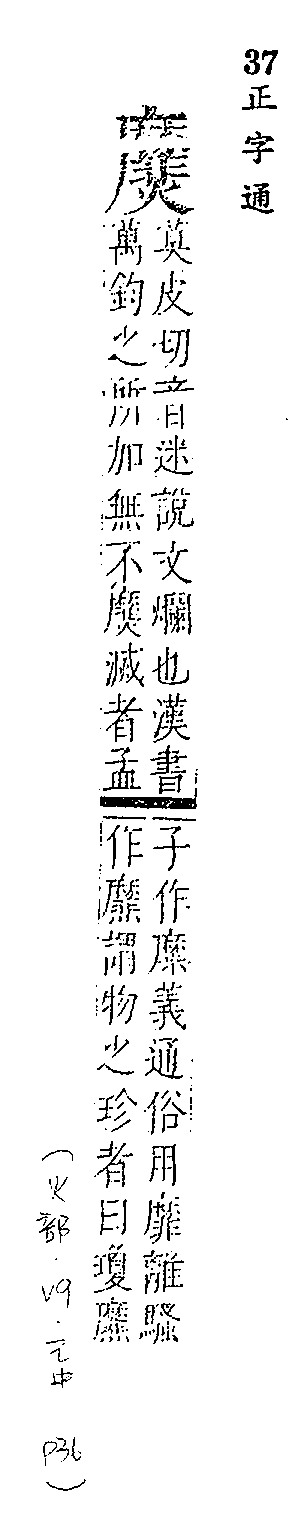 37正字通
莫皮切音迷說文爛也漢書
萬鈞之所加無不滅者孟
子作糜義通俗用靡離騷
作謂物之珍者曰瓊
(火部．V9．巳中 P36)